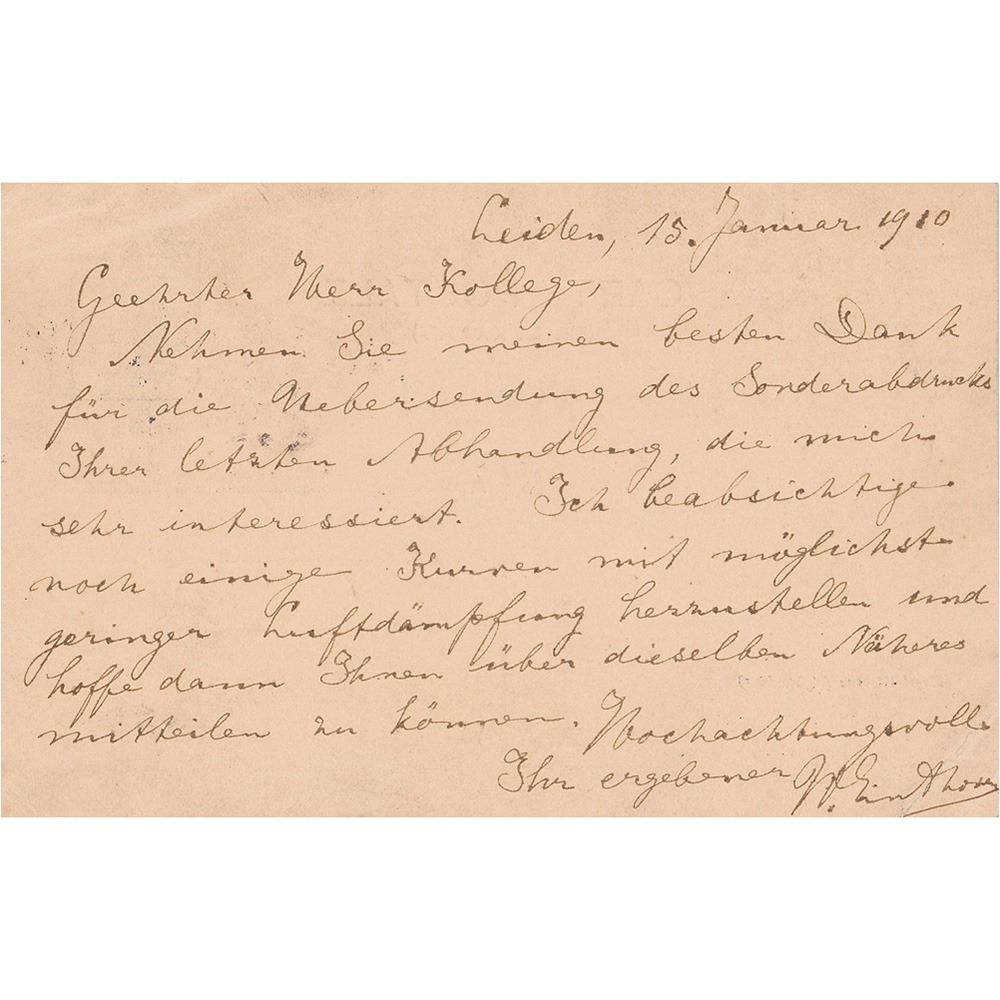 Leiden, 15. Januar 1910
Geehrter Herr Kollege,
Nehmen Sie meinen besten Dank
für die Uebersendung des Sonderabdrucks
Ihrer letzten Abhandlung, die mich
sehr interessiert. Ich beabsichtige
noch einige Kurven mit möglichst
geringer Luftdämpfung herzustellen und
hoffe dann Ihnen über dieselben Näheres
mitteilen zu können. Hochachtungsvoll
Ihr ergebener W. Einthoven